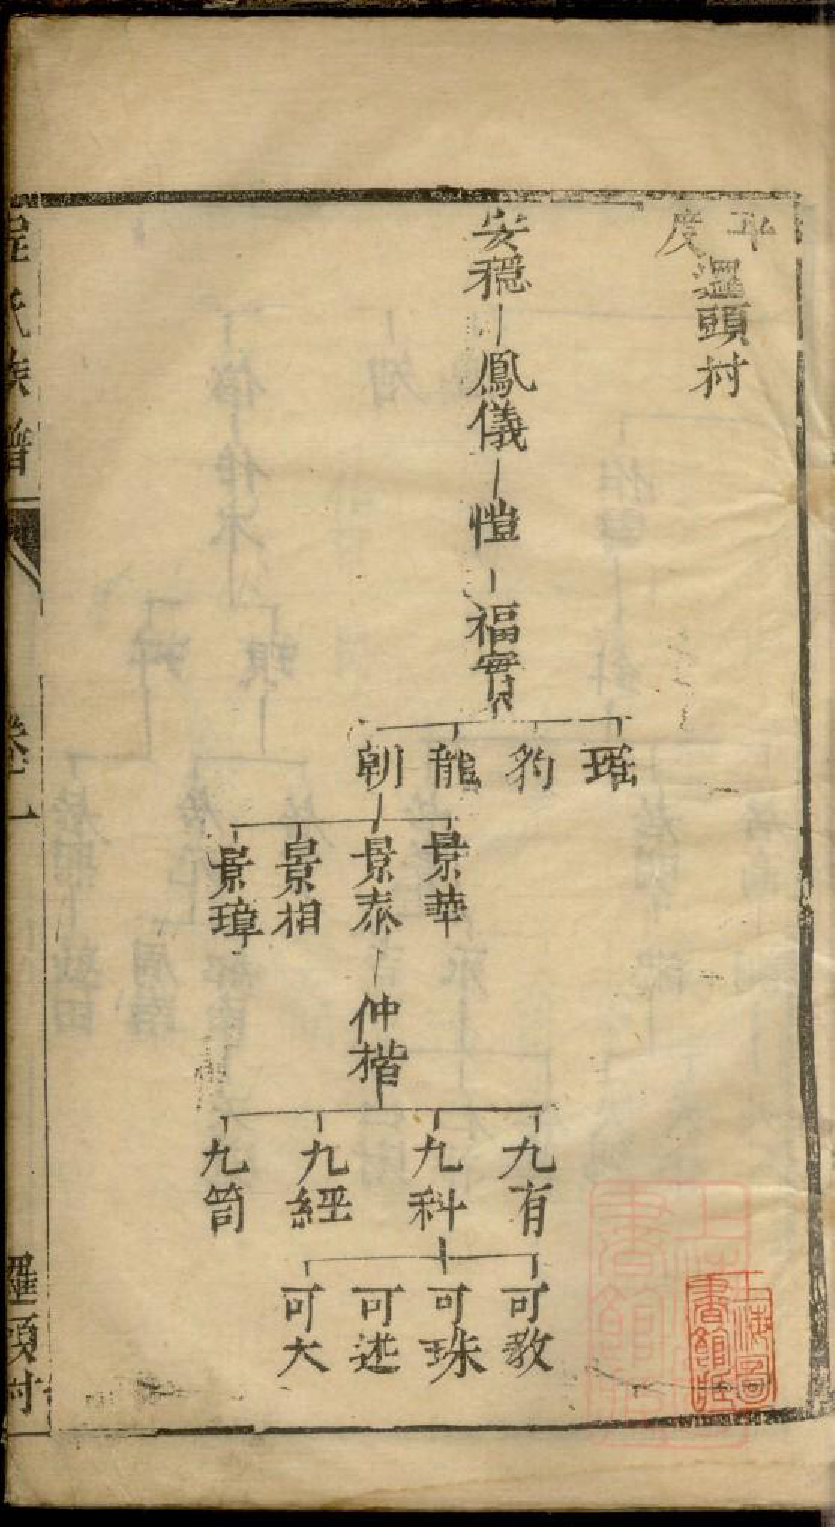 平度
邏頭村
安穩
鳳儀
愷
福實
琚 豹 龍 朝
景華 景泰 景相 景璋
仲楷
九有 九科 九經 九筒
可教 可珠 可述 可大
程氏族譜
卷一
邏頭村
上海圖書館藏